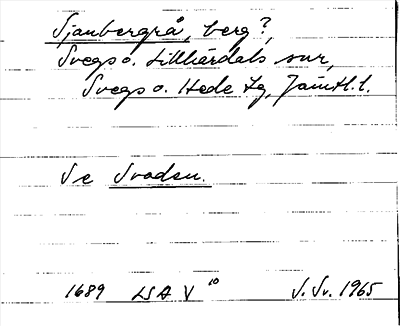 Sjaubergrå, berg?,
Svegs o. Lillhärdals snr,
Svegs o. Hede tg, Jämtl. l.
Se Svaden.
1689 LSA V 10 S. Sv. 1965